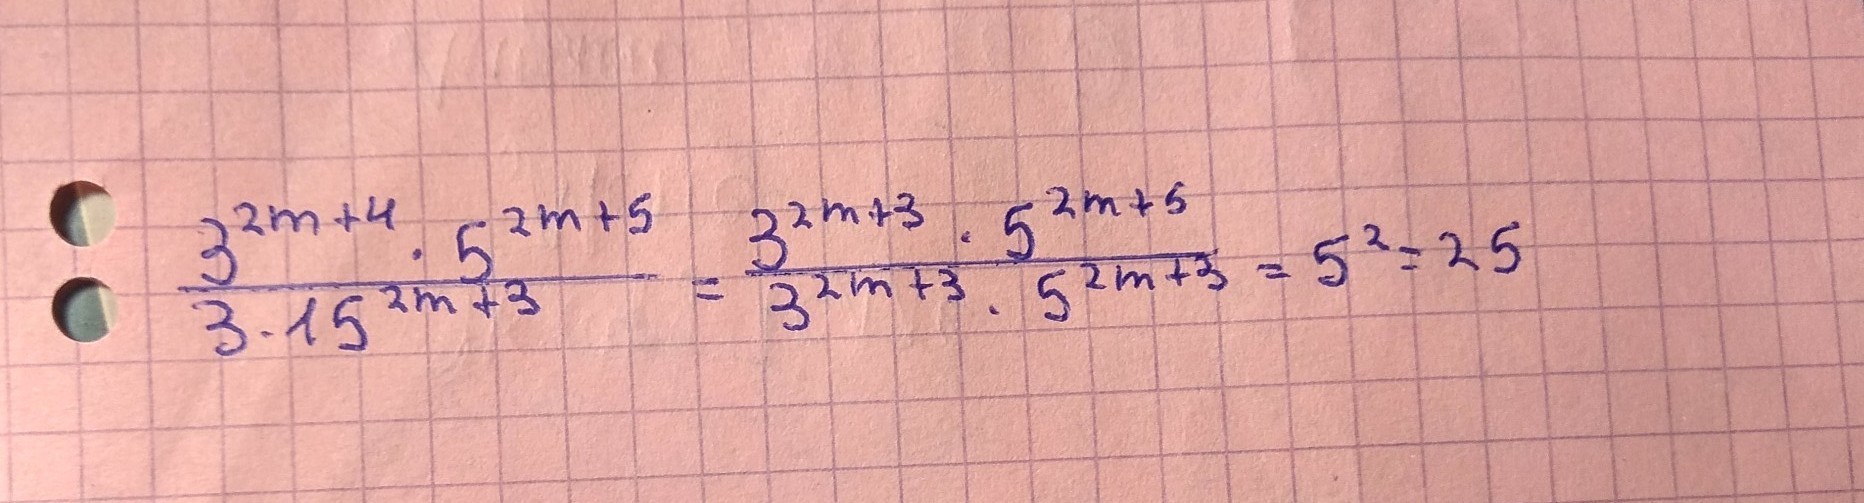 \frac{3^{2m+4} \cdot 5^{2m+5}}{3 \cdot 15^{2m+3}} = \frac{3^{2m+3} \cdot 5^{2m+5}}{3^{2m+3} \cdot 5^{2m+3}} = 5^2 = 25